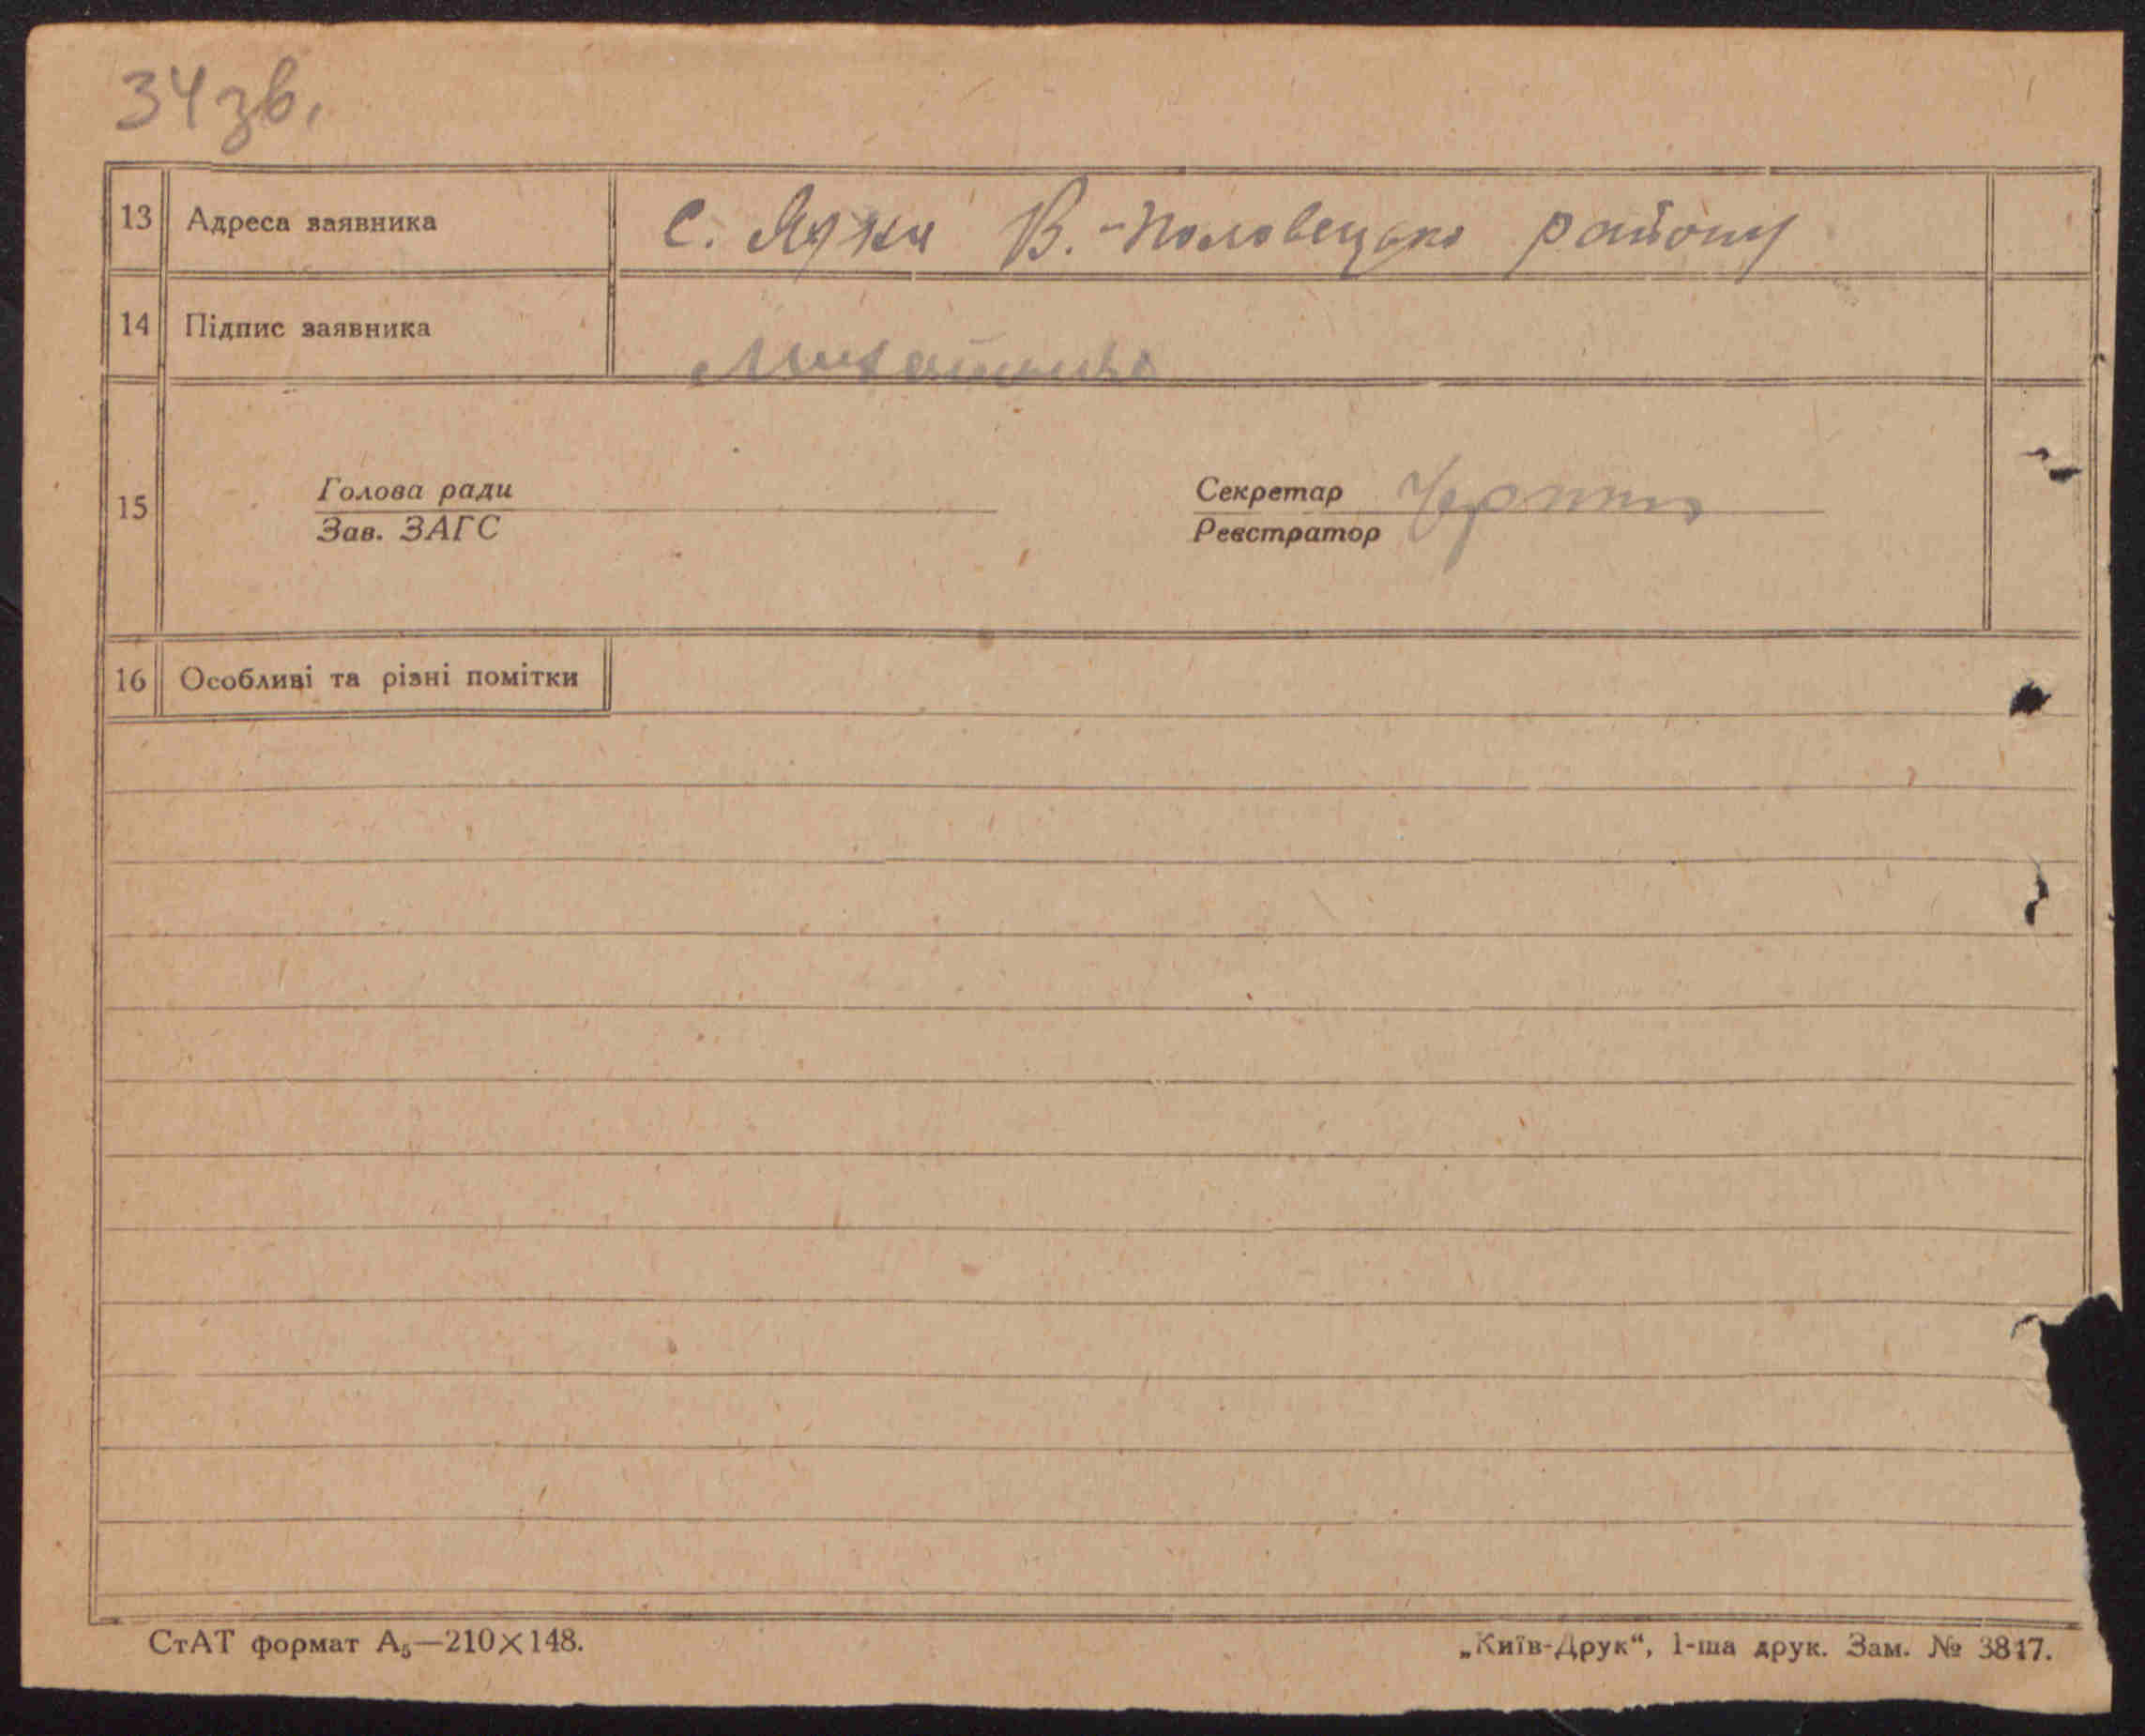 34 зв.
13 Адреса заявника С. Яцки В.-Половецько району
14 Підпис заявника
15 Голова ради Секретар
Зав. ЗАГС Реєстратор
16 Особливі та різні помітки
СтАТ формат А₅—210×148. „Київ-Друк“, 1-ша друк. Зам. № 3817.